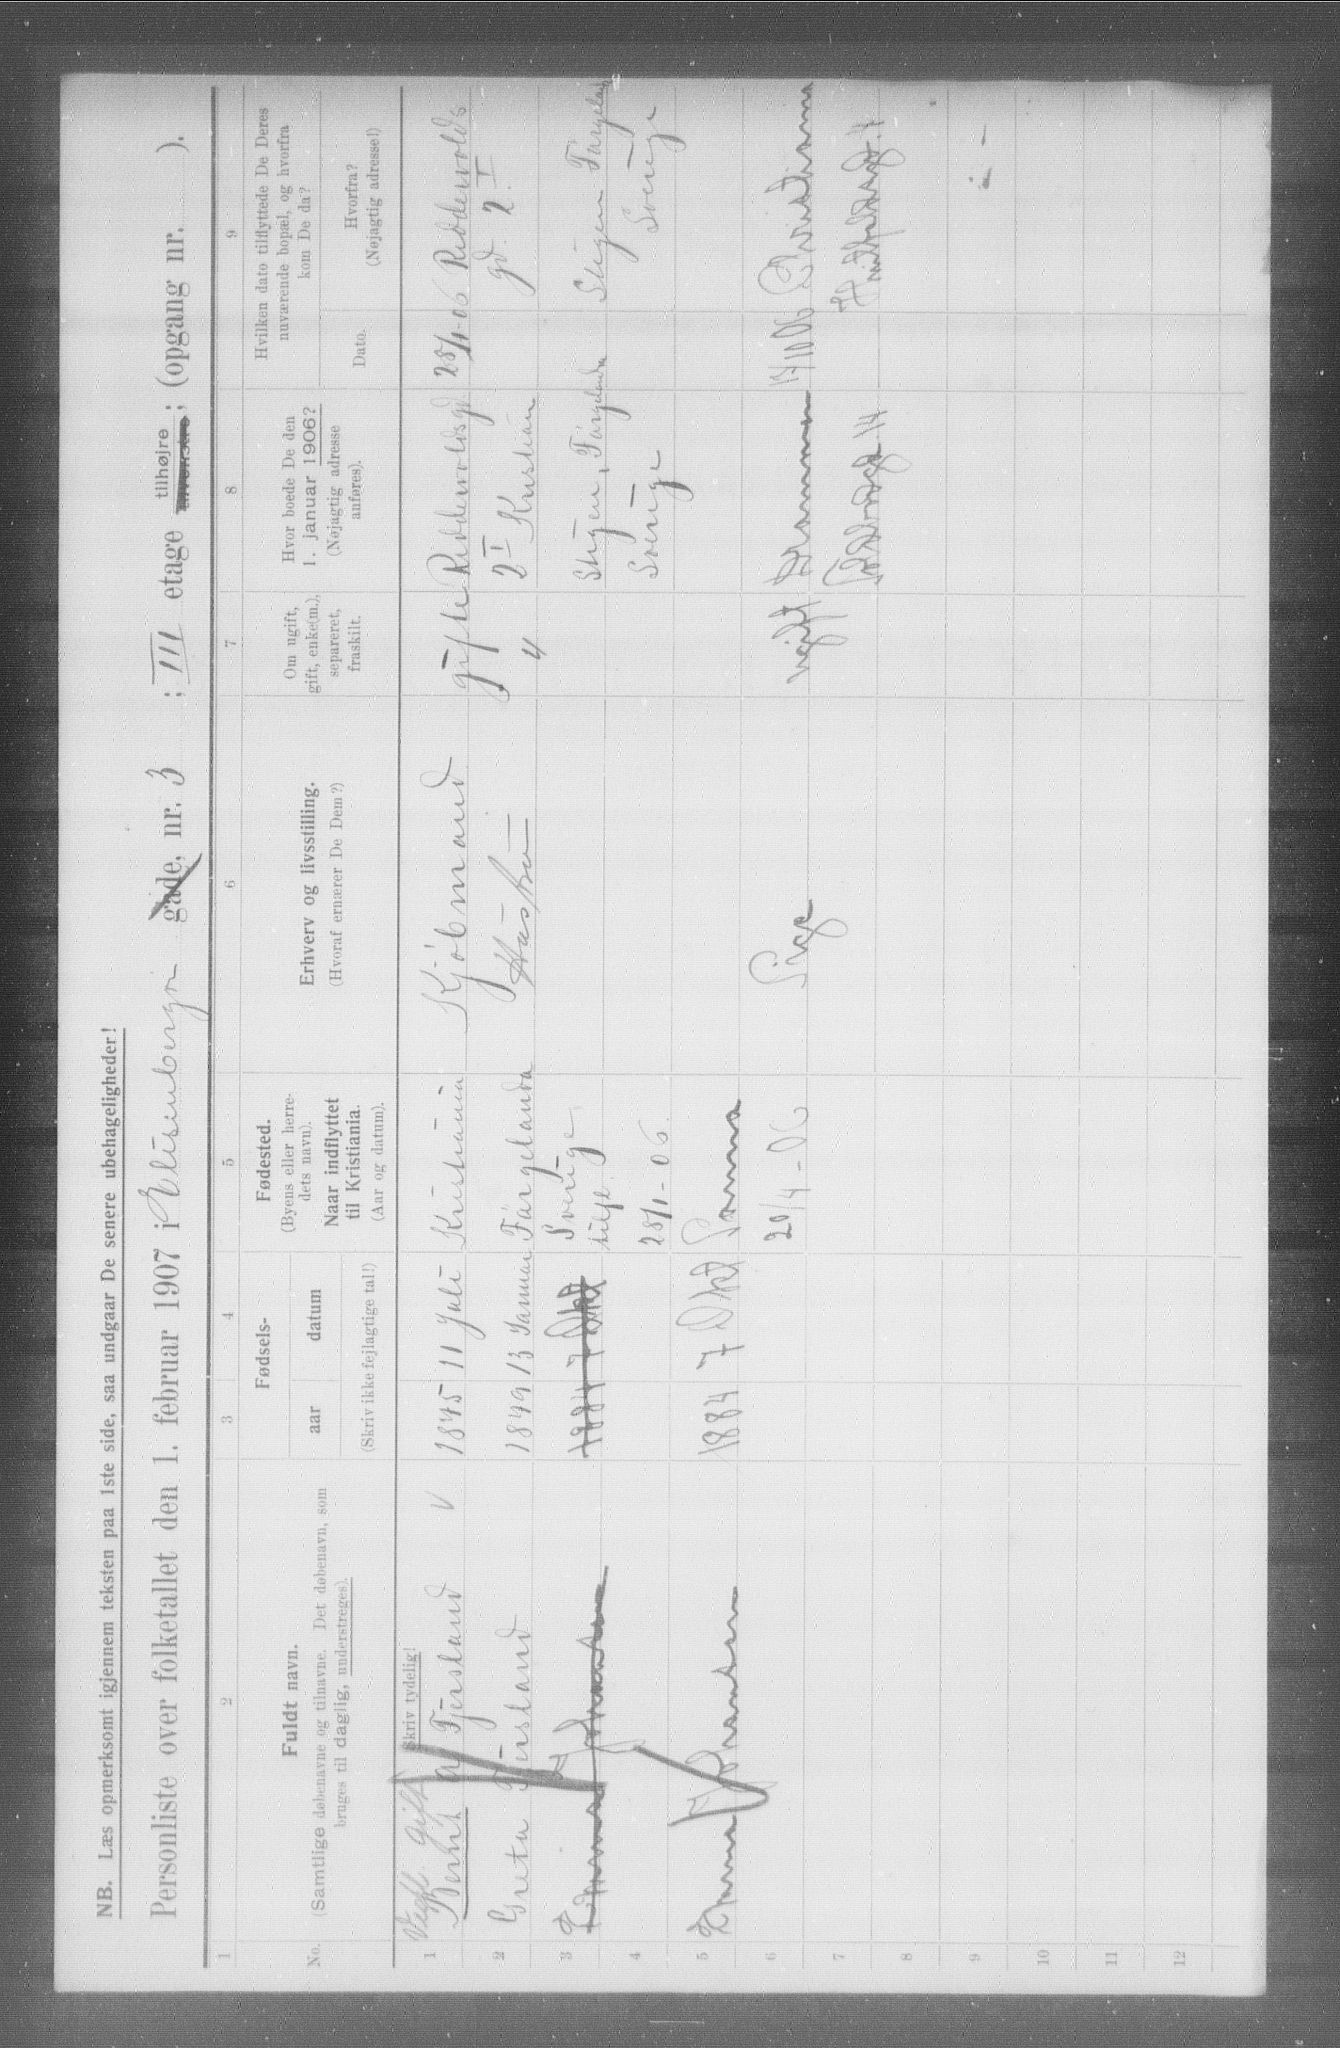 NB. Læs opmerksomt igjennem teksten paa 1ste side, saa undgaar De senere ubehageligheder!
Personliste over folketallet den 1. februar 1907 i Elisenbergv gade, nr. 3 ; III etage tilhøjre tilvenstre; (opgang nr. ).
1 2 3 4 5 6 7 8 9
No.
Fuldt navn.
(Samtlige døbenavne og tilnavne. Det døbenavn, som
bruges til daglig, understreges).
Fødsels-
aar datum
(Skriv ikke fejlagtige tal!)
Fødested.
(Byens eller herre-
dets navn).
Naar indflyttet
til Kristiania.
(Aar og datum).
Erhverv og livsstilling.
(Hvoraf ernærer De Dem?)
Om ugift,
gift, enke(m.),
separeret,
fraskilt.
Hvor boede De den
1. januar 1906?
(Nøjagtig adresse
anføres).
Hvilken dato tilflyttede De Deres
nuværende bopæl, og hvorfra
kom De da?
Dato.
Hvorfra?
(Nøjagtig adresse!)
Skriv tydelig!
1 A Fjersland 1845 11 Juli Kristiania Kjøbmand gifte Riddervoldsgd 28/1-06 Riddervolds
2 II Kristian gd. 2 I
2 Greta Fjersland 1849 13 Januar Färgelanda Hustru "
3 1884 7 Okt Sverige Stigen, Färgelanda Stigen Färgeland
tilfl. Sverige Sverige
4 28/1-06
5 Anna 1884 7 Okt
6 20/4-06 Pige ugift Drammen Christiania
7
8
9
10
11
12